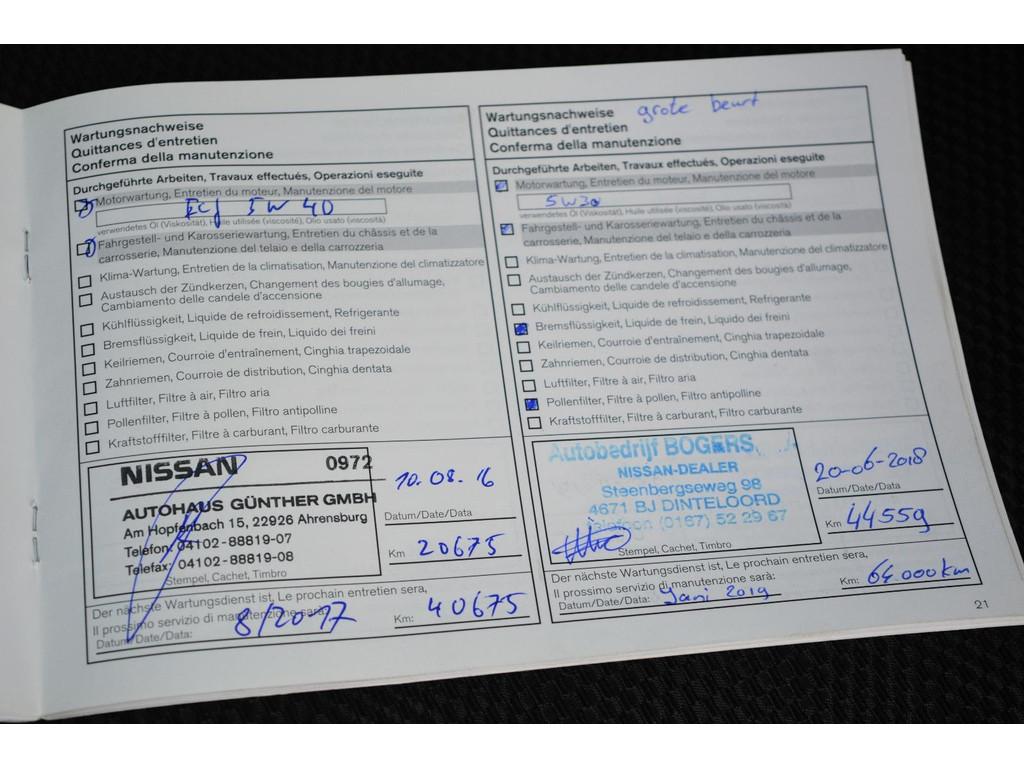 Wartungsnachweise
Quittances d'entretien
Conferma della manutenzione
Durchgeführte Arbeiten, Travaux effectués, Operazioni eseguite
Motorwartung, Entretien du moteur, Manutenzione del motore
5W 40
verwendetes Öl (Viskosität), Huile utilisée (viscosité), Olio usato (viscosità)
Fahrgestell- und Karosseriewartung, Entretien du châssis et de la
carrosserie, Manutenzione del telaio e della carrozzeria
Klima-Wartung, Entretien de la climatisation, Manutenzione del climatizzatore
Austausch der Zündkerzen, Changement des bougies d'allumage,
Cambiamento delle candele d'accensione
Kühlflüssigkeit, Liquide de refroidissement, Refrigerante
Bremsflüssigkeit, Liquide de frein, Liquido dei freini
Keilriemen, Courroie d'entraînement, Cinghia trapezoidale
Zahnriemen, Courroie de distribution, Cinghia dentata
Luftfilter, Filtre à air, Filtro aria
Pollenfilter, Filtre à pollen, Filtro antipolline
Kraftstofffilter, Filtre à carburant, Filtro carburante
NISSAN 0972
AUTOHAUS GÜNTHER GMBH
Am Hopfenbach 15, 22926 Ahrensburg
Telefon: 04102-88819-07
Telefax: 04102-88819-08
Stempel, Cachet, Timbro
10.08.16
Datum/Date/Data
Km 20675
Der nächste Wartungsdienst ist, Le prochain entretien sera,
Il prossimo servizio di manutenzione sarà:
Datum/Date/Data: 8/2017 Km: 40675
Wartungsnachweise grote beurt
Quittances d'entretien
Conferma della manutenzione
Durchgeführte Arbeiten, Travaux effectués, Operazioni eseguite
Motorwartung, Entretien du moteur, Manutenzione del motore
5W30
verwendetes Öl (Viskosität), Huile utilisée (viscosité), Olio usato (viscosità)
Fahrgestell- und Karosseriewartung, Entretien du châssis et de la
carrosserie, Manutenzione del telaio e della carrozzeria
Klima-Wartung, Entretien de la climatisation, Manutenzione del climatizzatore
Austausch der Zündkerzen, Changement des bougies d'allumage,
Cambiamento delle candele d'accensione
Kühlflüssigkeit, Liquide de refroidissement, Refrigerante
Bremsflüssigkeit, Liquide de frein, Liquido dei freini
Keilriemen, Courroie d'entraînement, Cinghia trapezoidale
Zahnriemen, Courroie de distribution, Cinghia dentata
Luftfilter, Filtre à air, Filtro aria
Pollenfilter, Filtre à pollen, Filtro antipolline
Kraftstofffilter, Filtre à carburant, Filtro carburante
Autobedrijf BOGERS
NISSAN-DEALER
Steenbergseweg 98
4671 BJ DINTELOORD
Telefoon (0167) 52 29 67
Stempel, Cachet, Timbro
20-06-2018
Datum/Date/Data
Km 44559
Der nächste Wartungsdienst ist, Le prochain entretien sera,
Il prossimo servizio di manutenzione sarà:
Datum/Date/Data: Juni 2019 Km: 64.000km
21